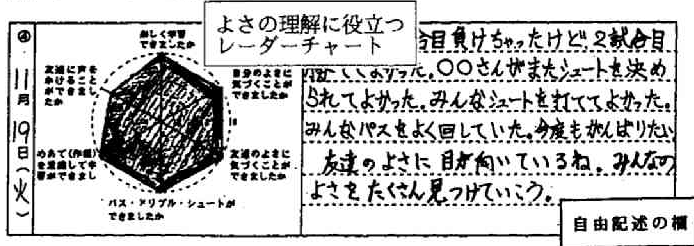 ④
11月19日(火)
よさの理解に役立つ
レーダーチャート
楽しく学習
できましたか
自分のよさに
気づくことが
できましたか
友達のよさに
気づくことが
できましたか
パス・ドリブル・シュートが
できましたか
めあて(作戦)
を意識して学
習ができまし
たか
友達に声を
かけること
ができまし
たか
合目負けちゃったけど、2試合目
てよかった。〇〇さんがまたシュートを決め
られてよかった。みんなシュートを打ててよかった。
みんなパスをよく回していた。今度もがんばりたい
友達のよさに目が向いているね。みんなの
よさをたくさん見つけていこう。
自由記述の欄